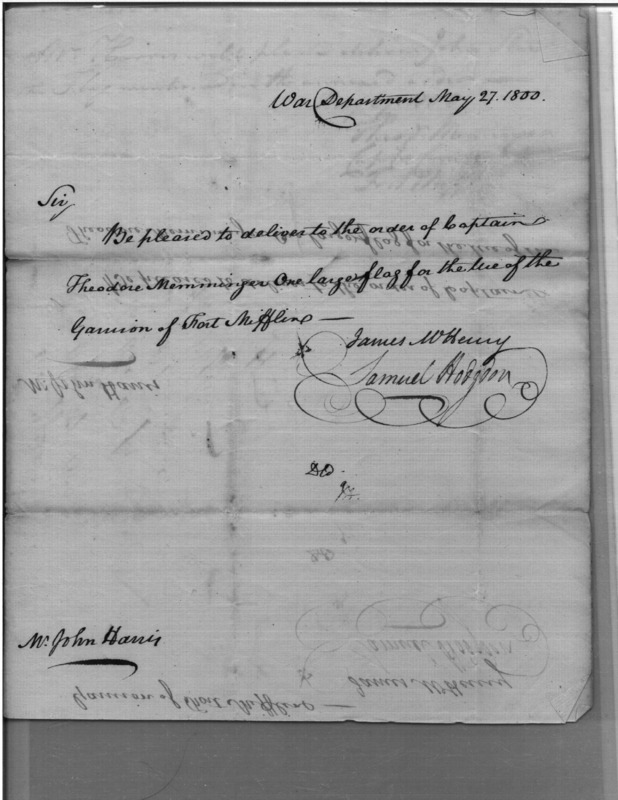 War Department May 27. 1800.
Sir,
Be pleased to deliver to the order of Captain
Theodore Memminger One large flag for the use of the
Garrison of Fort Mifflin —
James McHenry
Samuel Hodgdon
Mr. John Harris